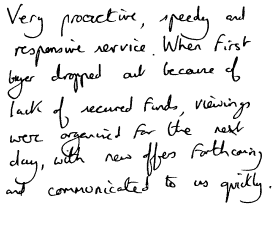 Very proactive, speedy and
responsive service. When first
buyer dropped out because of
lack of secured funds, viewings
were organised for the next
day, with new offers forthcoming
and communicated to us quickly.